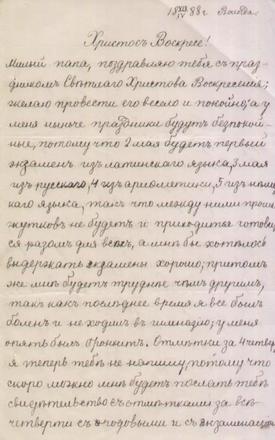 18 XIII/IV 88 г.
Христосъ Воскресе!
Милый папа, поздравляю тебя съ праз-
дникомъ Свѣтлаго Христова Воскресения;
желаю провести его весело и покойно; а у
меня нынче праздники будутъ безпокой-
ные, потому что 2 мая будетъ первый
экзаменъ изъ латинскаго языка, 3 мая
изъ русскаго, 4 изъ ариөметики, 5 изъ нѣмец
каго языка, такъ что между ними проме
жутковъ не будетъ и приходится готови
ся разомъ для всѣхъ, а мнѣ бы хотѣлось
выдержать экзамены хорошо; притомъ
же мнѣ будетъ труднѣе чѣмъ другимъ,
такъ какъ послѣднее время я все былъ
боленъ и не ходилъ въ гимназію; у меня
опять былъ бронхитъ. Отмѣтки за 4 четвер
я теперь тебѣ не напишу, потому что
скоро можно мнѣ будетъ послать тебѣ
свидѣтельство съ отмѣтками за всѣ
четверти съ годовыми и съ экзаменаціон